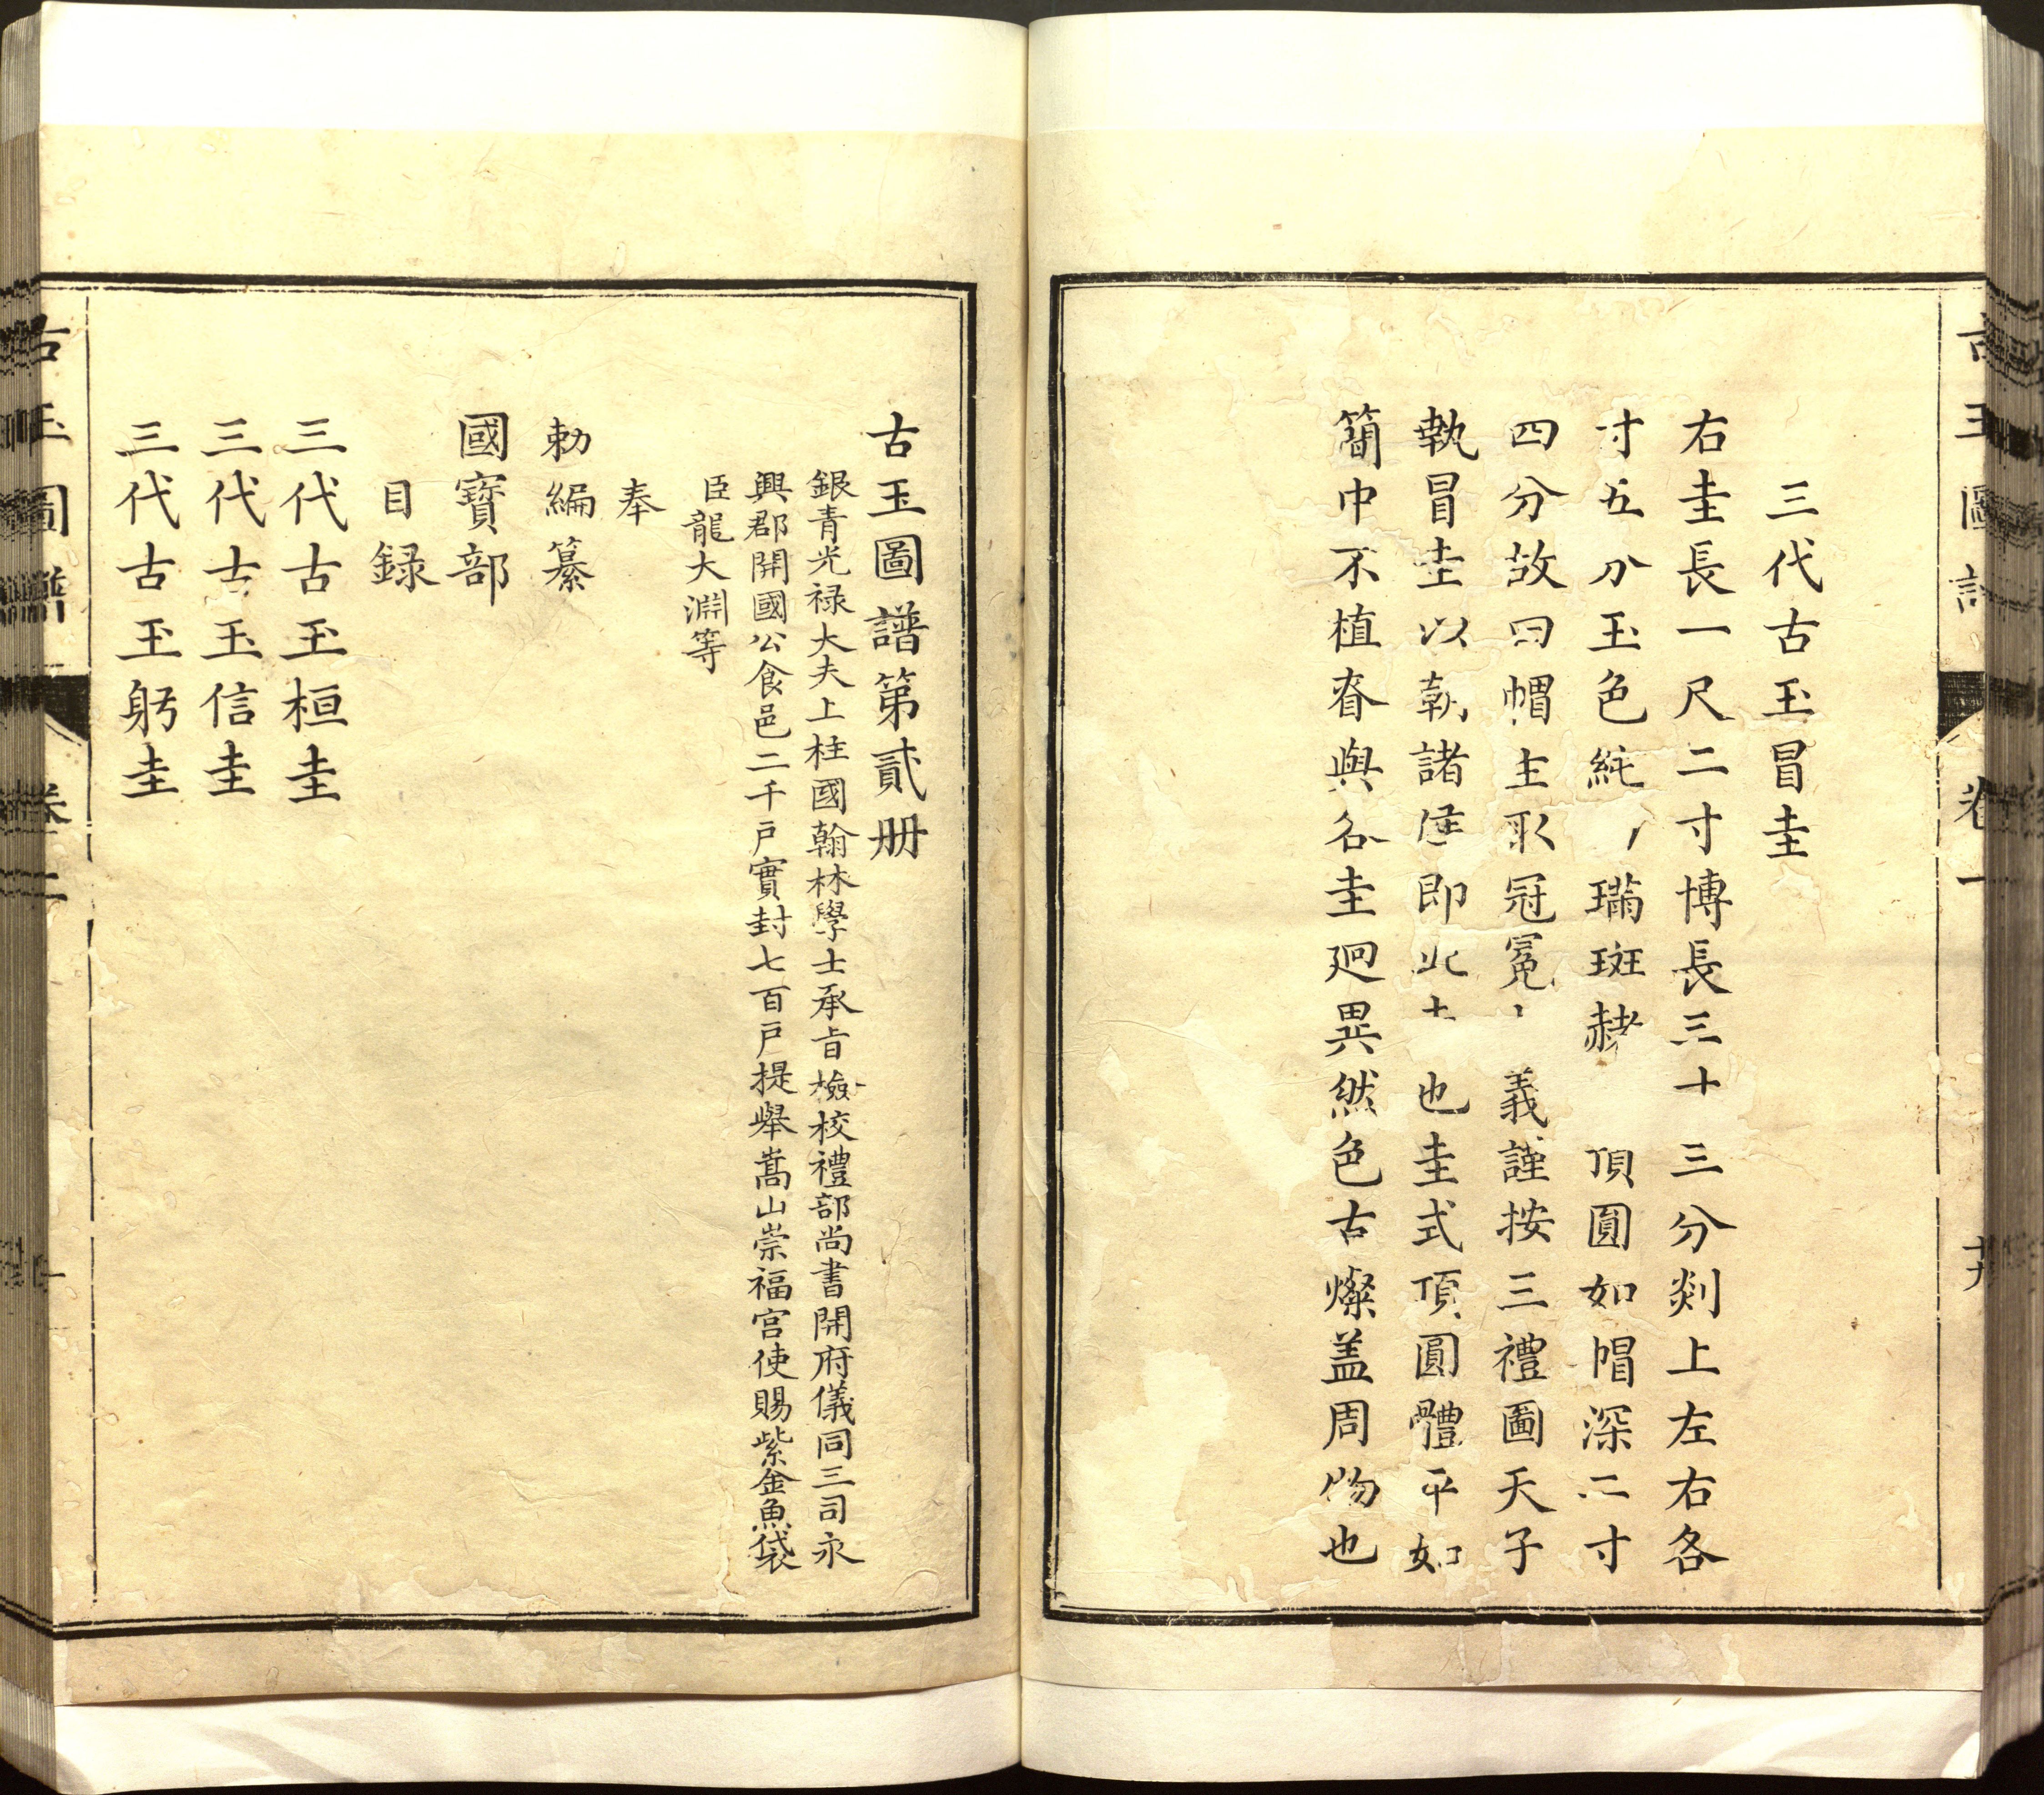 三代古玉冒圭
右圭長一尺二寸博長三寸三分剡上左右各
寸五分玉色純 璊斑赭 頂圓如帽深二寸
四分故曰帽圭取冠冕 義謹按三禮圖天子
執冒圭以朝諸侯即此 也圭式頂圓體平如
簡中不植脊與谷圭迥異然色古燦盖周物也
古玉圖譜 卷一
古玉圖譜第貳册
銀青光禄大夫上柱國翰林學士承旨檢校禮部尚書開府儀同三司永
興郡開國公食邑二千戸實封七百戸提舉嵩山崇福宮使賜紫金魚袋
臣龍大淵等
奉
勅編纂
國寶部
目録
三代古玉桓圭
三代古玉信圭
三代古玉躬圭
古玉圖譜 卷二 一